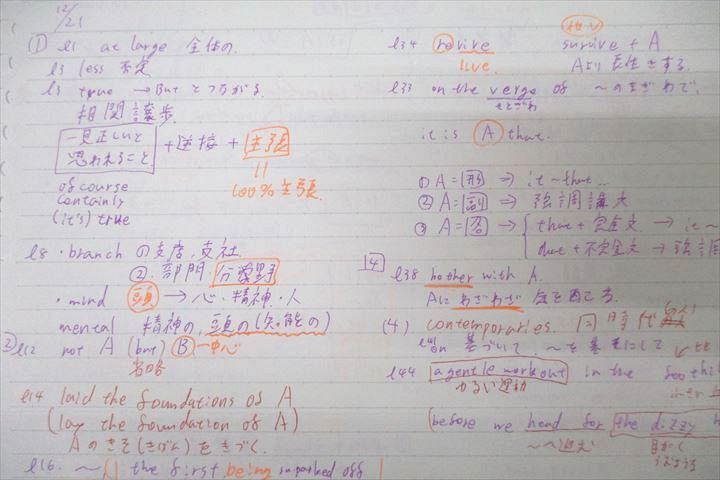 12/21
(1) l1 at large 全体の
l3 less 否定
l3 true → But とつながる.
相関譲歩
一見正しいと思われること + 逆接 + 主張
100%主張.
of course
certainly
(it's) true
l8 ・branch の支店, 支社
② 部門, 分野
・mind 頭 → 心・精神・人
mental 精神の, 頭の(知能の)
2) l12 not A (but) B 中心
省略
l14 laid the foundations of A
(lay the foundation of A)
Aのきそ(きばん)をきづく.
l16. ~ the first being sparked off
l34 revive survive + A
live. Aより長生きする.
l33 on the verge of ~のまぎわで.
it is A that.
① A = 形 ⇒ it ~ that...
② A = 副 ⇒ 強調構文
③ A = 名 ⇒ that + 完全文 → it ~
that + 不完全文 → 強調
4
l38 bother with A.
Aにわざわざ 気を配る.
(4) contemporaries. 同時代
l41 on 基づいて, ~を基そにして
l44 a gentle workout in the foothil
かるい運動
(before we head for the dizzy h
~へ進む